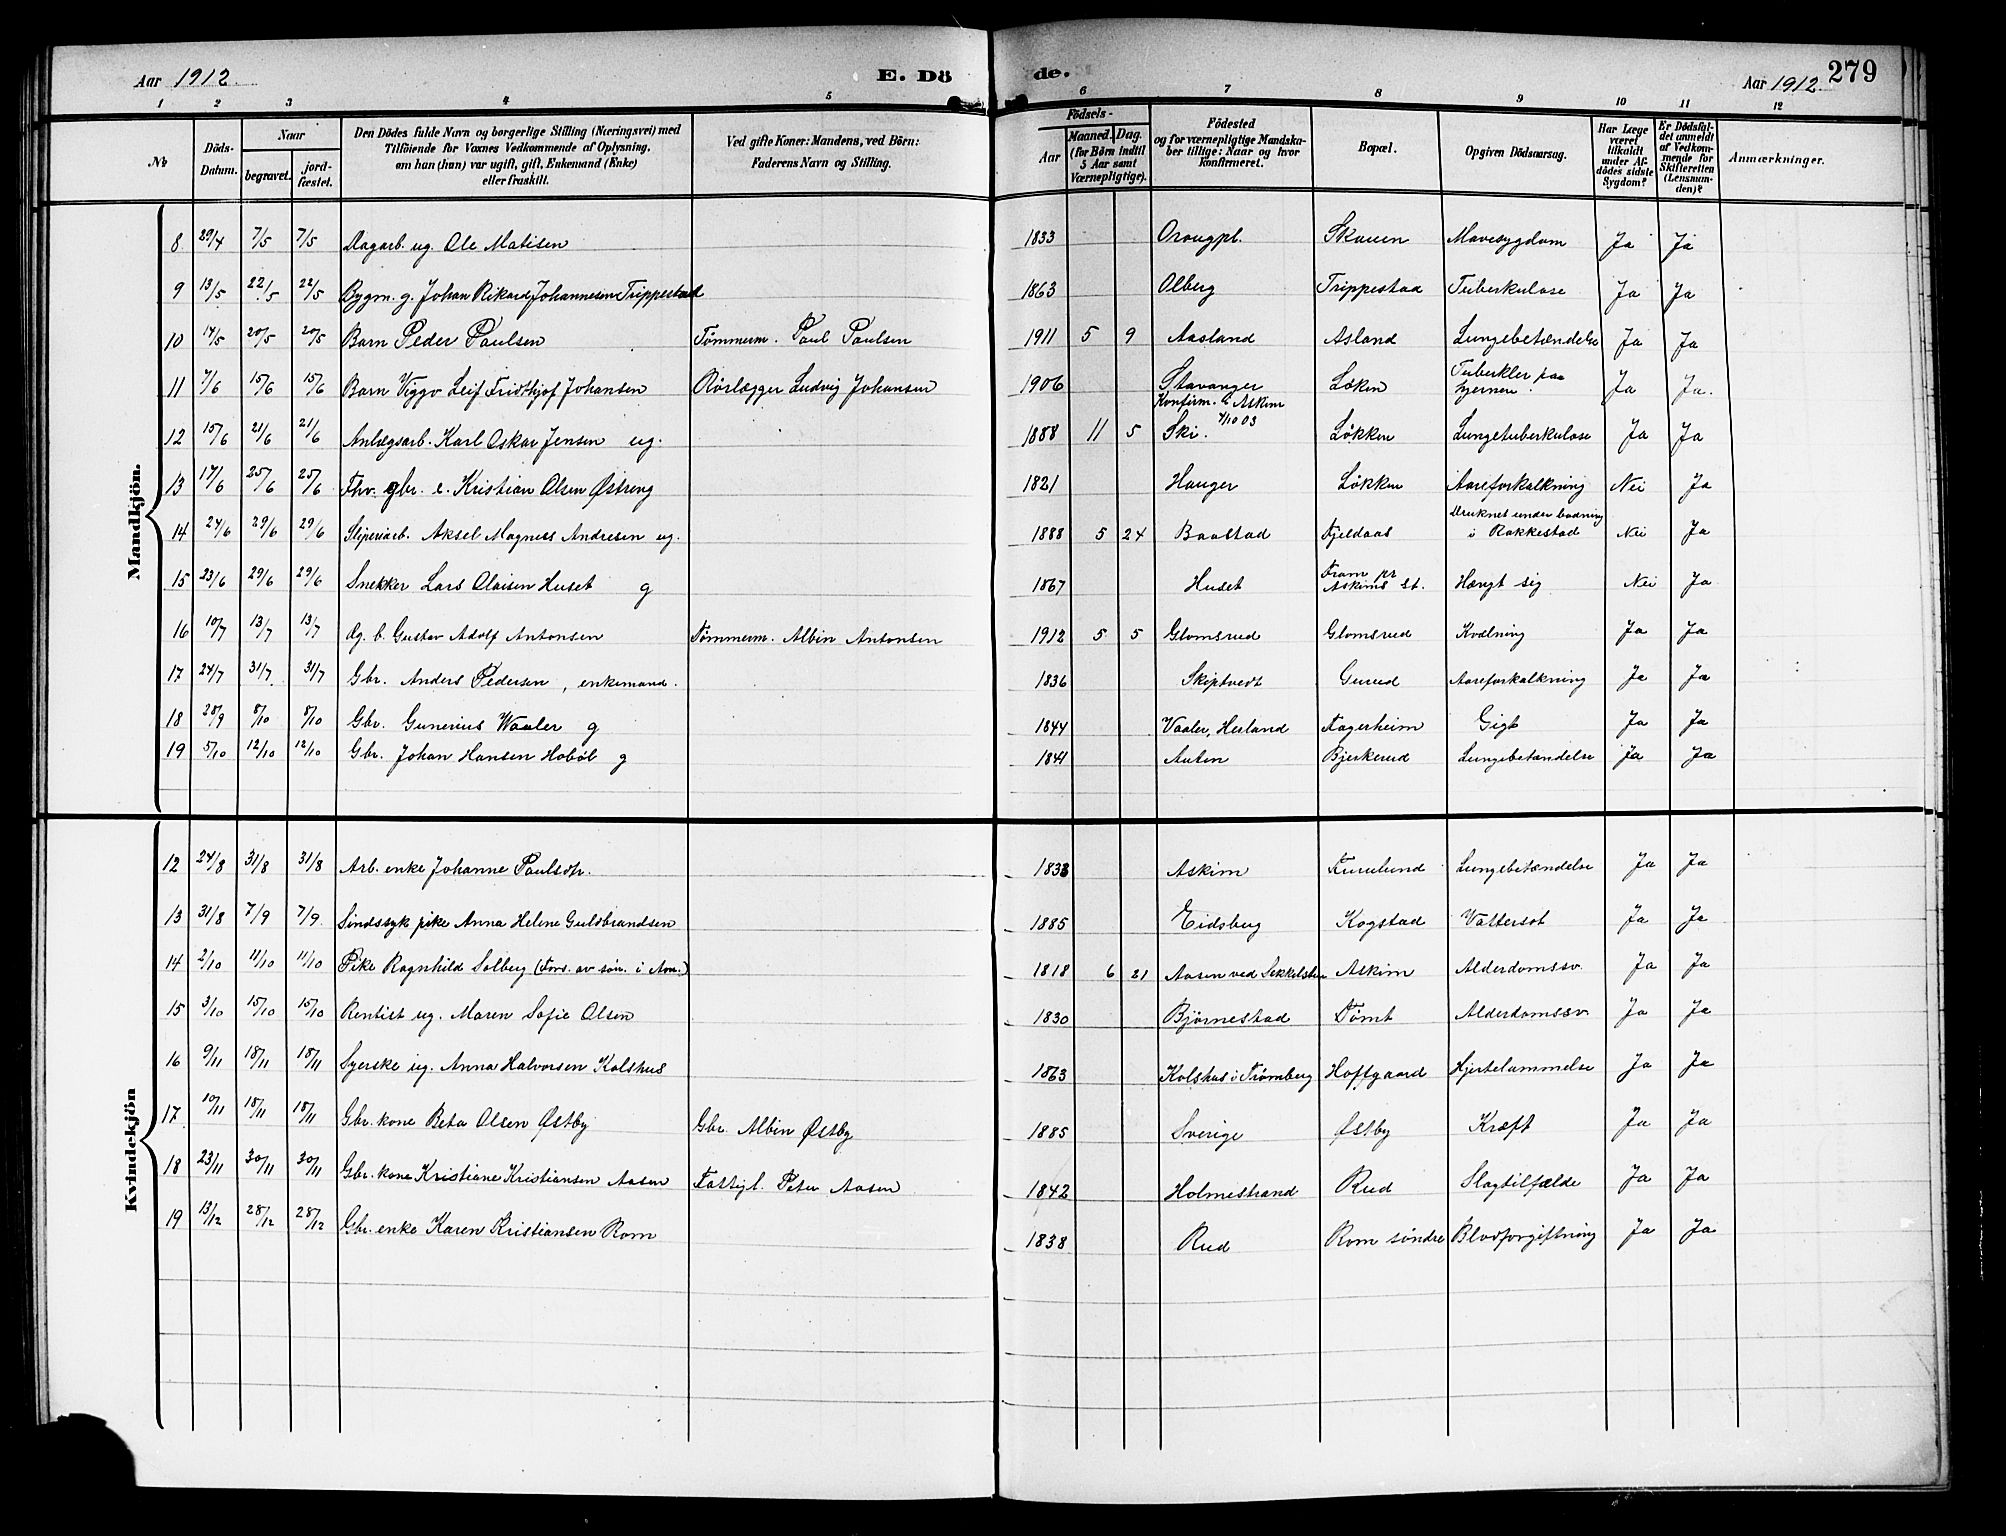 Aar 1912.
E. Dö
de.
Aar 1912.
279
1 2 3 4 5 6 7 8 9 10 11 12
No
Döds-Datum.
Naar
begravet.
jord-fæstet.
Den Dödes fulde Navn og borgerlige Stilling (Næringsvei) med
Tilföiende for Voxnes Vedkommende af Oplysning,
om han (hun) var ugift, gift, Enkemand (Enke)
eller fraskilt.
Ved gifte Koner: Mandens, ved Börn:
Faderens Navn og Stilling.
Födsels-
Aar
Maaned. Dag.
(for Börn indtil
5 Aar samt
Værnepligtige).
Födested
og for værnepligtige Mandska-
ber tillige: Naar og hvor
konfirmeret.
Bopæl.
Opgiven Dödsaarsag.
Har Læge
været
tilkaldt
under Af-
dödes sidste
Sygdom?
Er Dödsfal-
det anmeldt
af Vedkom-
mende for
Skifteretten
(Lensman-
den)?
Anmærkninger.
Mandkjön.
8 29/4 7/5 7/5 Dagarb. ug. Ole Matisen 1833 Oraugpl. Skauen Mavesygdom Ja Ja
9 13/5 22/5 22/5 Bygm. g. Johan Rikard Johannesen Trippestad 1863 Olberg Trippestad Tuberkulose Ja Ja
10 14/5 20/5 20/5 Barn Peder Paulsen Tømmerm. Paul Paulsen 1911 5 9 Aasland Asland Lungebetændelse Ja Ja
11 7/6 15/6 15/6 Barn Viggo Leif Fridthjof Johansen Rörlægger Ludvig Johansen 1906 Stavanger Løken Tuberkler paa hjernen. Ja Ja.
12 15/6 21/6 21/6 Anlægsarb. Karl Oskar Jensen ug. 1888 11 5 Konfirm. i Askim 4/10 03 Ski. Løkken Lungetuberkulose Ja Ja
13 17/6 25/6 25/6 Fhv. gbr. e. Kristian Olsen Østreng 1821 Hauger Løkken Aareforkalkning Nei Ja
14 24/6 29/6 29/6 Sliperiarb. Aksel Magnus Andresen ug. 1888 5 24 Baastad Fjeldaas Druknet under badning i Rakkestad Nei Ja
15 23/6 29/6 29/6 Snekker Lars Olaisen Huset g 1867 Huset Fram pr Askims st. Hængt sig Nei Ja
16 10/7 13/7 13/7 Æg. b. Gustav Adolf Antonsen Tømmerm. Albin Antonsen 1912 5 5 Glomsrud Glomsrud Kvælning Ja Ja
17 24/7 31/7 31/7 Gbr. Anders Pedersen, enkemand. 1836 Skiptvedt Gurud Aareforkalkning Ja Ja
18 28/9 8/10 8/10 Gbr. Gunerius Waaler g 1844 Vaaler, Herland Fagerheim Gigt Ja Ja
19 5/10 12/10 12/10 Gbr. Johan Hansen Hobøl g 1841 Auten Bjerkerud Lungebetændelse Ja Ja
Kvindekjön
12 24/8 31/8 31/8 Arb. enke Johanne Paulsdtr. 1833 Askim Furulund Lungebetændelse Ja Ja
13 31/8 7/9 7/9. Sindssyk pike Anna Helene Guldbrandsen 1885 Eidsberg Kogstad Vattersot Ja Ja
14 2/10 11/10 11/10 Pike Ragnhild Solberg (Fors. av søn. i Am.) 1818 6 21 Aasen ved Sekkelsten Askim Alderdomssv. Ja Ja
15 3/10 15/10 15/10 Rentist ug. Maren Sofie Olsen 1830 Bjørnestad Tømt Alderdomssv Ja Ja
16 9/11 18/11 18/11 Syerske ug. Anna Halvorsen Kolshus 1863 Kolshus i Trømborg Hoffgaard Hjertelammelse Ja Ja
17 10/11 18/11 18/11 Gbr. kone Beta Olsen Østby Gbr. Albin Østby 1885 Sverige Østby Kræft Ja Ja
18 23/11 30/11 30/11 Gbr. kone Kristiane Kristiansen Aasen Fattigl. Peter Aasen 1842 Holmestrand Rud Slagtilfælde Ja Ja
19 13/12 28/12 28/12 Gbr. enke Karen Kristiansen Rom 1838 Rud Rom søndre Blodforgiftning Ja Ja